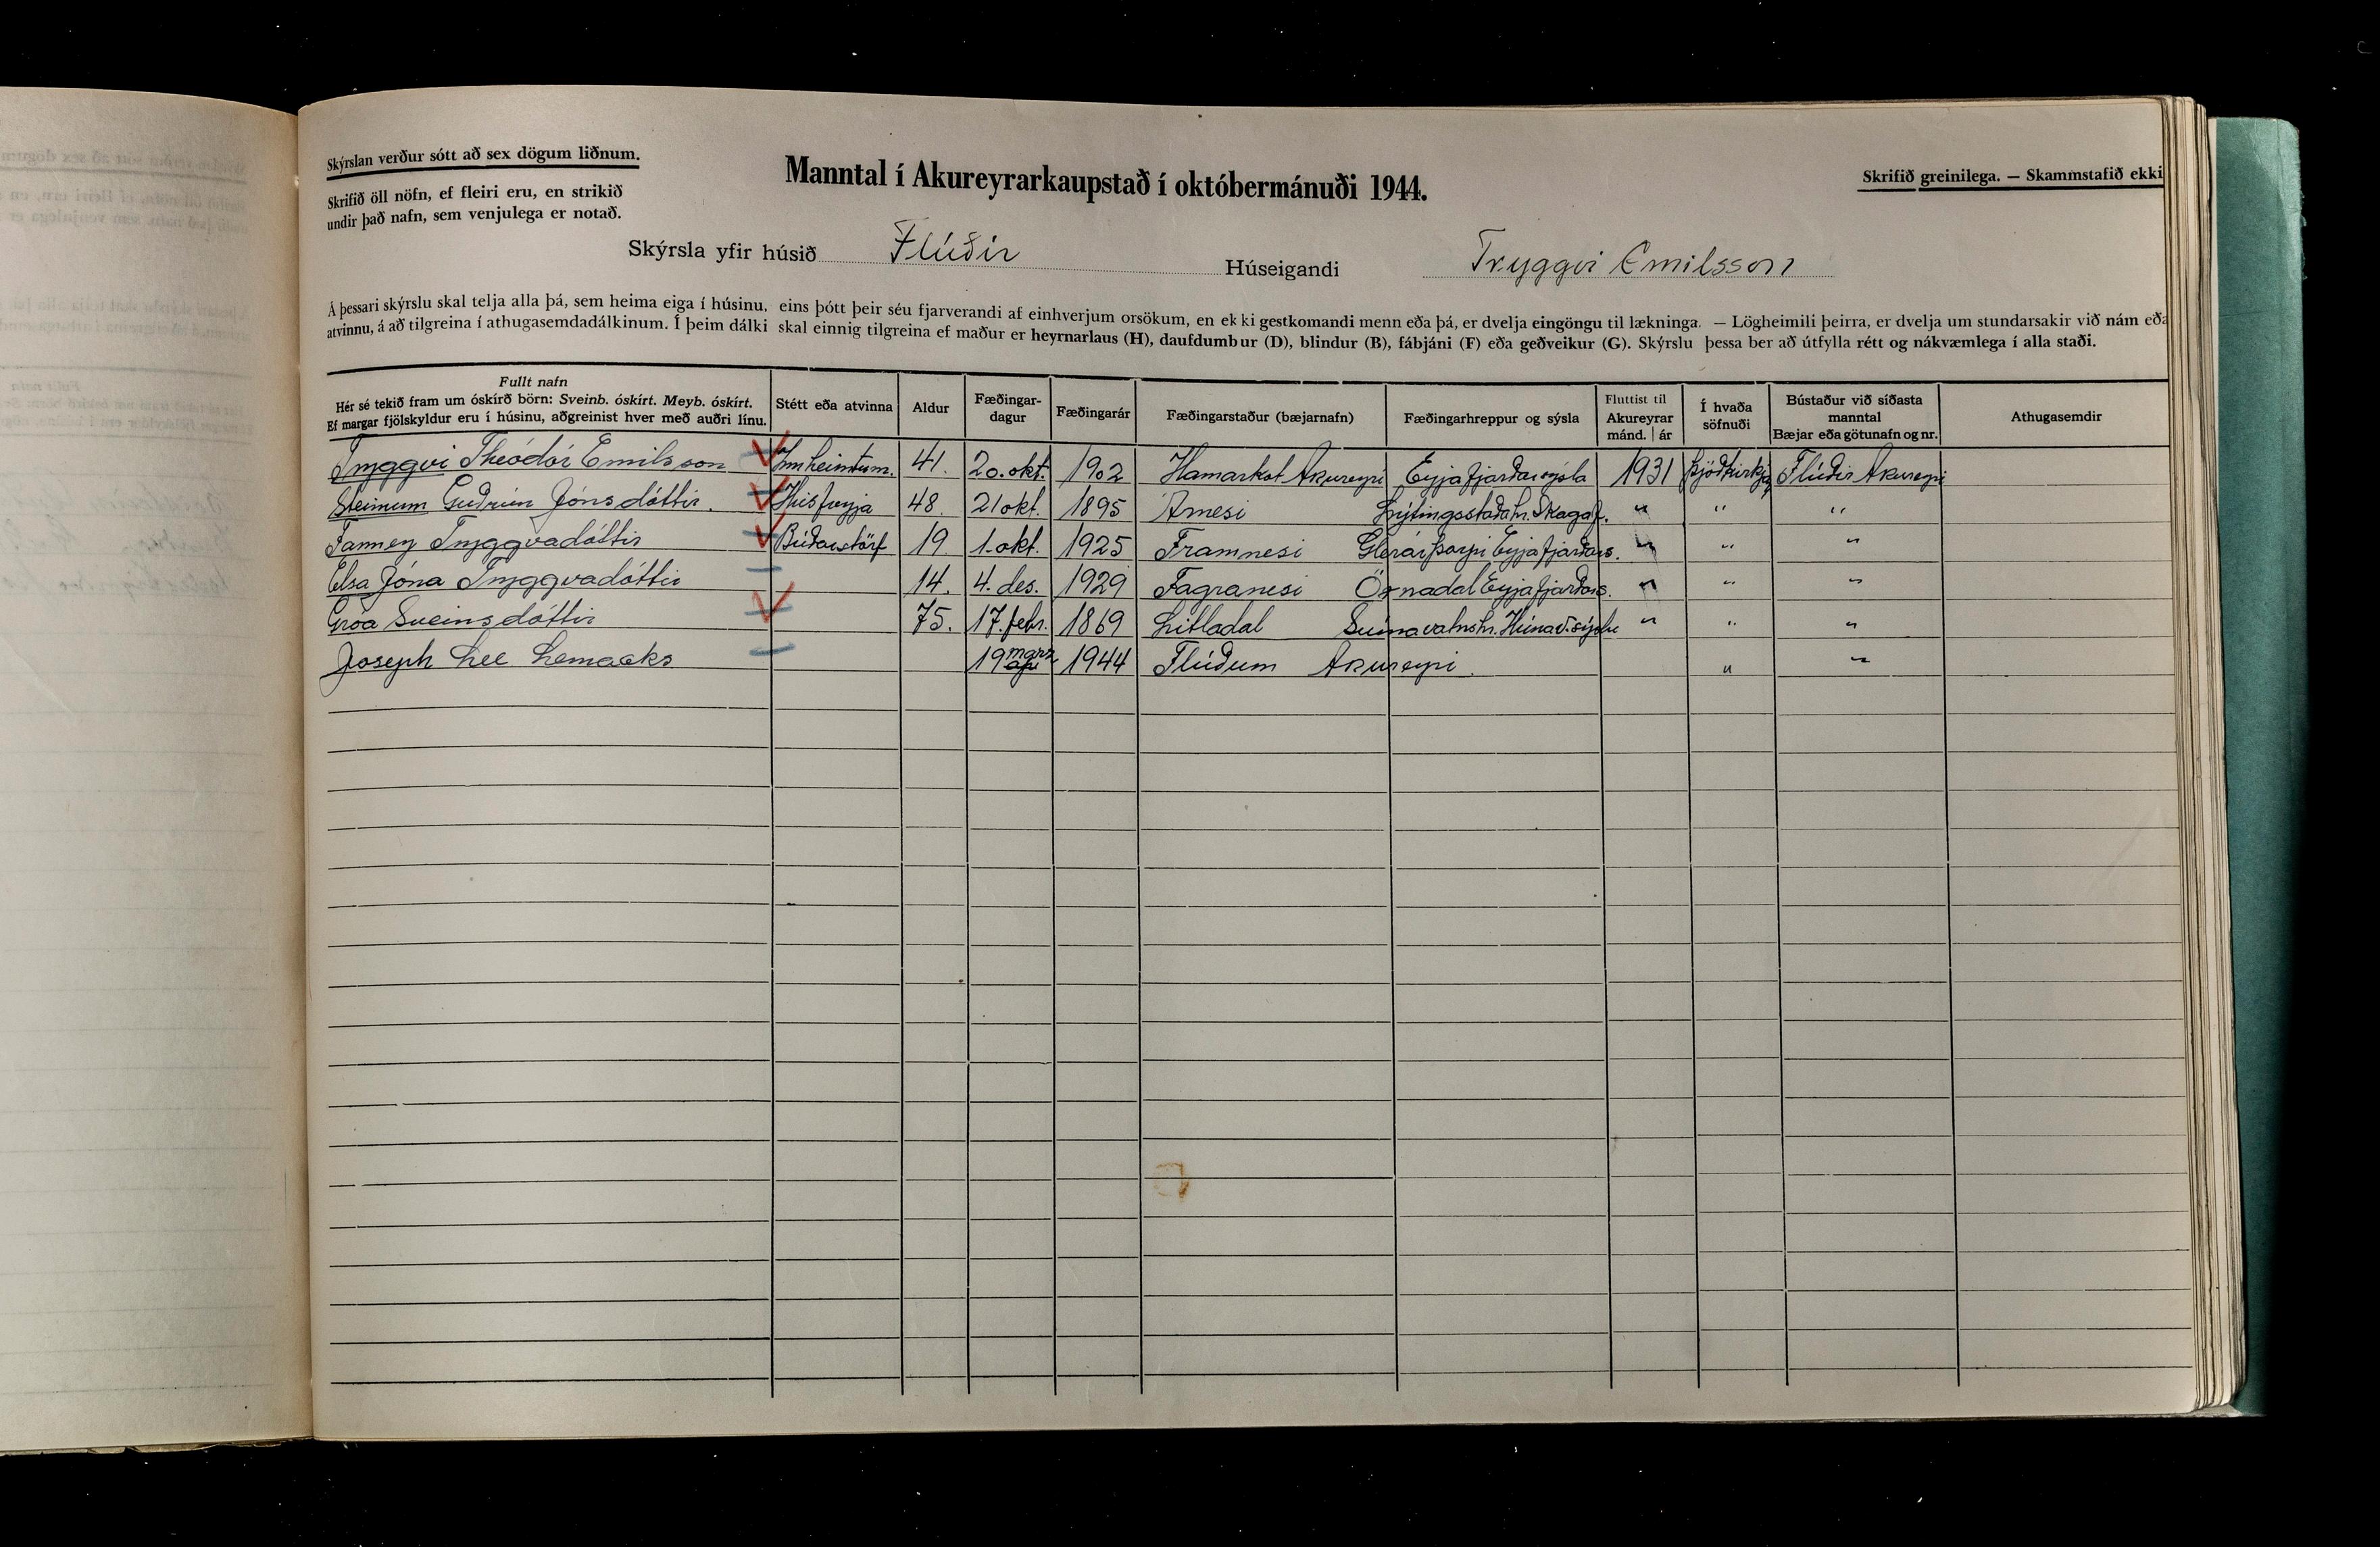 Skýrslan verður sótt að sex dögum liðnum.
Skrifið öll nöfn, ef fleiri eru, en strikið
undir það nafn, sem venjulega er notað.
Manntal í Akureyrarkaupstað í októbermánuði 1944.
Skrifið greinilega. — Skammstafið ekki
Skýrsla yfir húsið Flúðir Húseigandi Tryggvi Emilsson
Á þessari skýrslu skal telja alla þá, sem heima eiga í húsinu, eins þótt þeir séu fjarverandi af einhverjum orsökum, en ekki gestkomandi menn eða þá, er dvelja eingöngu til lækninga. — Lögheimili þeirra, er dvelja um stundarsakir við nám eða
atvinnu, á að tilgreina í athugasemdadálkinum. Í þeim dálki skal einnig tilgreina ef maður er heyrnarlaus (H), daufdumbur (D), blindur (B), fábjáni (F) eða geðveikur (G). Skýrslu þessa ber að útfylla rétt og nákvæmlega í alla staði.
Fullt nafn
Hér sé tekið fram um óskírð börn: Sveinb. óskírt. Meyb. óskírt.
Ef margar fjölskyldur eru í húsinu, aðgreinist hver með auðri línu.
Stétt eða atvinna
Aldur
Fæðingar-
dagur
Fæðingarár
Fæðingarstaður (bæjarnafn)
Fæðingarhreppur og sýsla
Fluttist til
Akureyrar
mánd. | ár
Í hvaða
söfnuði
Bústaður við síðasta
manntal
Bæjar eða götunafn og nr.
Athugasemdir
Tryggvi Theódór Emilsson Innheimtum. 41. 20. okt. 1902 Hamarkot Akureyri Eyjafjarðarsýsla 1931 Þjóðkirkju Flúðir Akureyri
Steinunn Guðrún Jónsdóttir. Húsfreyja 48. 21 okt. 1895 Árnesi Lýtingsstaðahr. Skagaf. " " "
Fanney Tryggvadóttir Búðarstörf 19 1. okt. 1925 Framnesi Glerárþorpi Eyjafjarðars. " " "
Elsa Jóna Tryggvadóttir 14. 4. des. 1929 Fagranesi Öxnadal Eyjafjarðars. " " "
Gróa Sveinsdóttir 75. 17. febr. 1869 Litladal Svínavatnshr. Húnav.sýslu " " "
Joseph Lee Lemacks 19 marz 1944 Flúðum Akureyri. " "